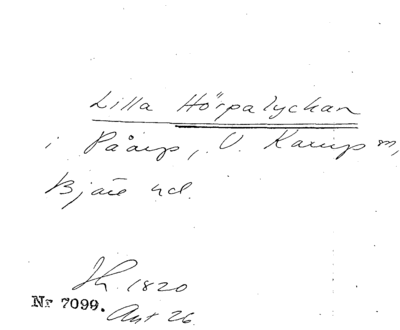 Lilla Hörpalyckan
i Påarp, V. Karup sn,
Bjäre hd.
Jh. 1820
Nr 7099. Ant 26